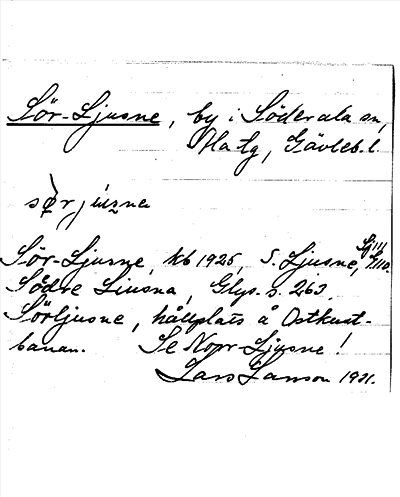 Sör-Ljusne, by i Söderala sn,
Hälsg, Gävleb. l.
sø̀r jùzna
Sör-Ljusne, kb 1925, S. Ljusne,
Södre Liusna, Glys. s. 263.
Sörljusne, hållplats å Ostkust-
banan. Se Norr-Ljusne!
Lars Larsson 1921.